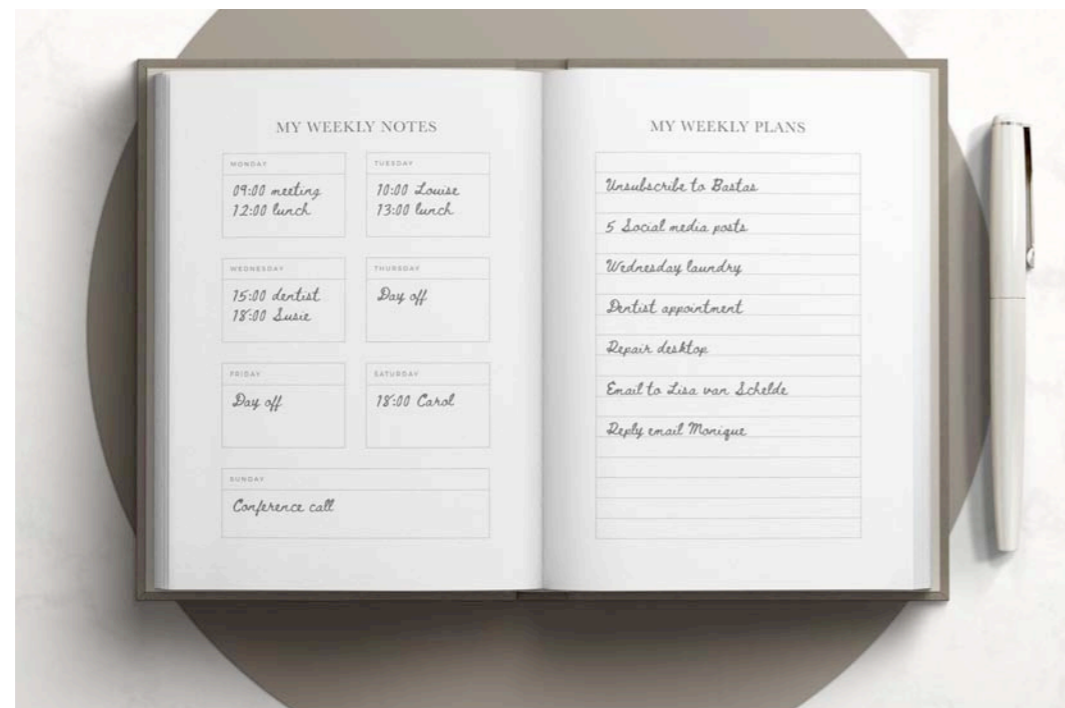 MY WEEKLY NOTES
MONDAY
09:00 meeting
12:00 lunch
TUESDAY
10:00 Louise
13:00 lunch
WEDNESDAY
15:00 dentist
18:00 Susie
THURSDAY
Day off
FRIDAY
Day off
SATURDAY
18:00 Carol
SUNDAY
Conference call
MY WEEKLY PLANS
Unsubscribe to Bastas
5 Social media posts
Wednesday laundry
Dentist appointment
Repair desktop
Email to Lisa van Schelde
Reply email Monique